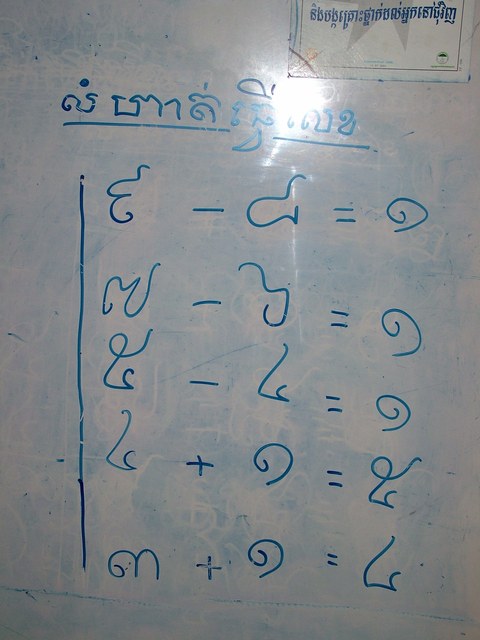 និងបង្កគ្រោះថ្នាក់ដល់អ្នកនៅជុំវិញ
លំហាត់ធ្វើលេខ
៩ - ៨ = ១
៧ - ៦ = ១
៥ - ៤ = ១
៤ + ១ = ៥
៣ + ១ = ៤